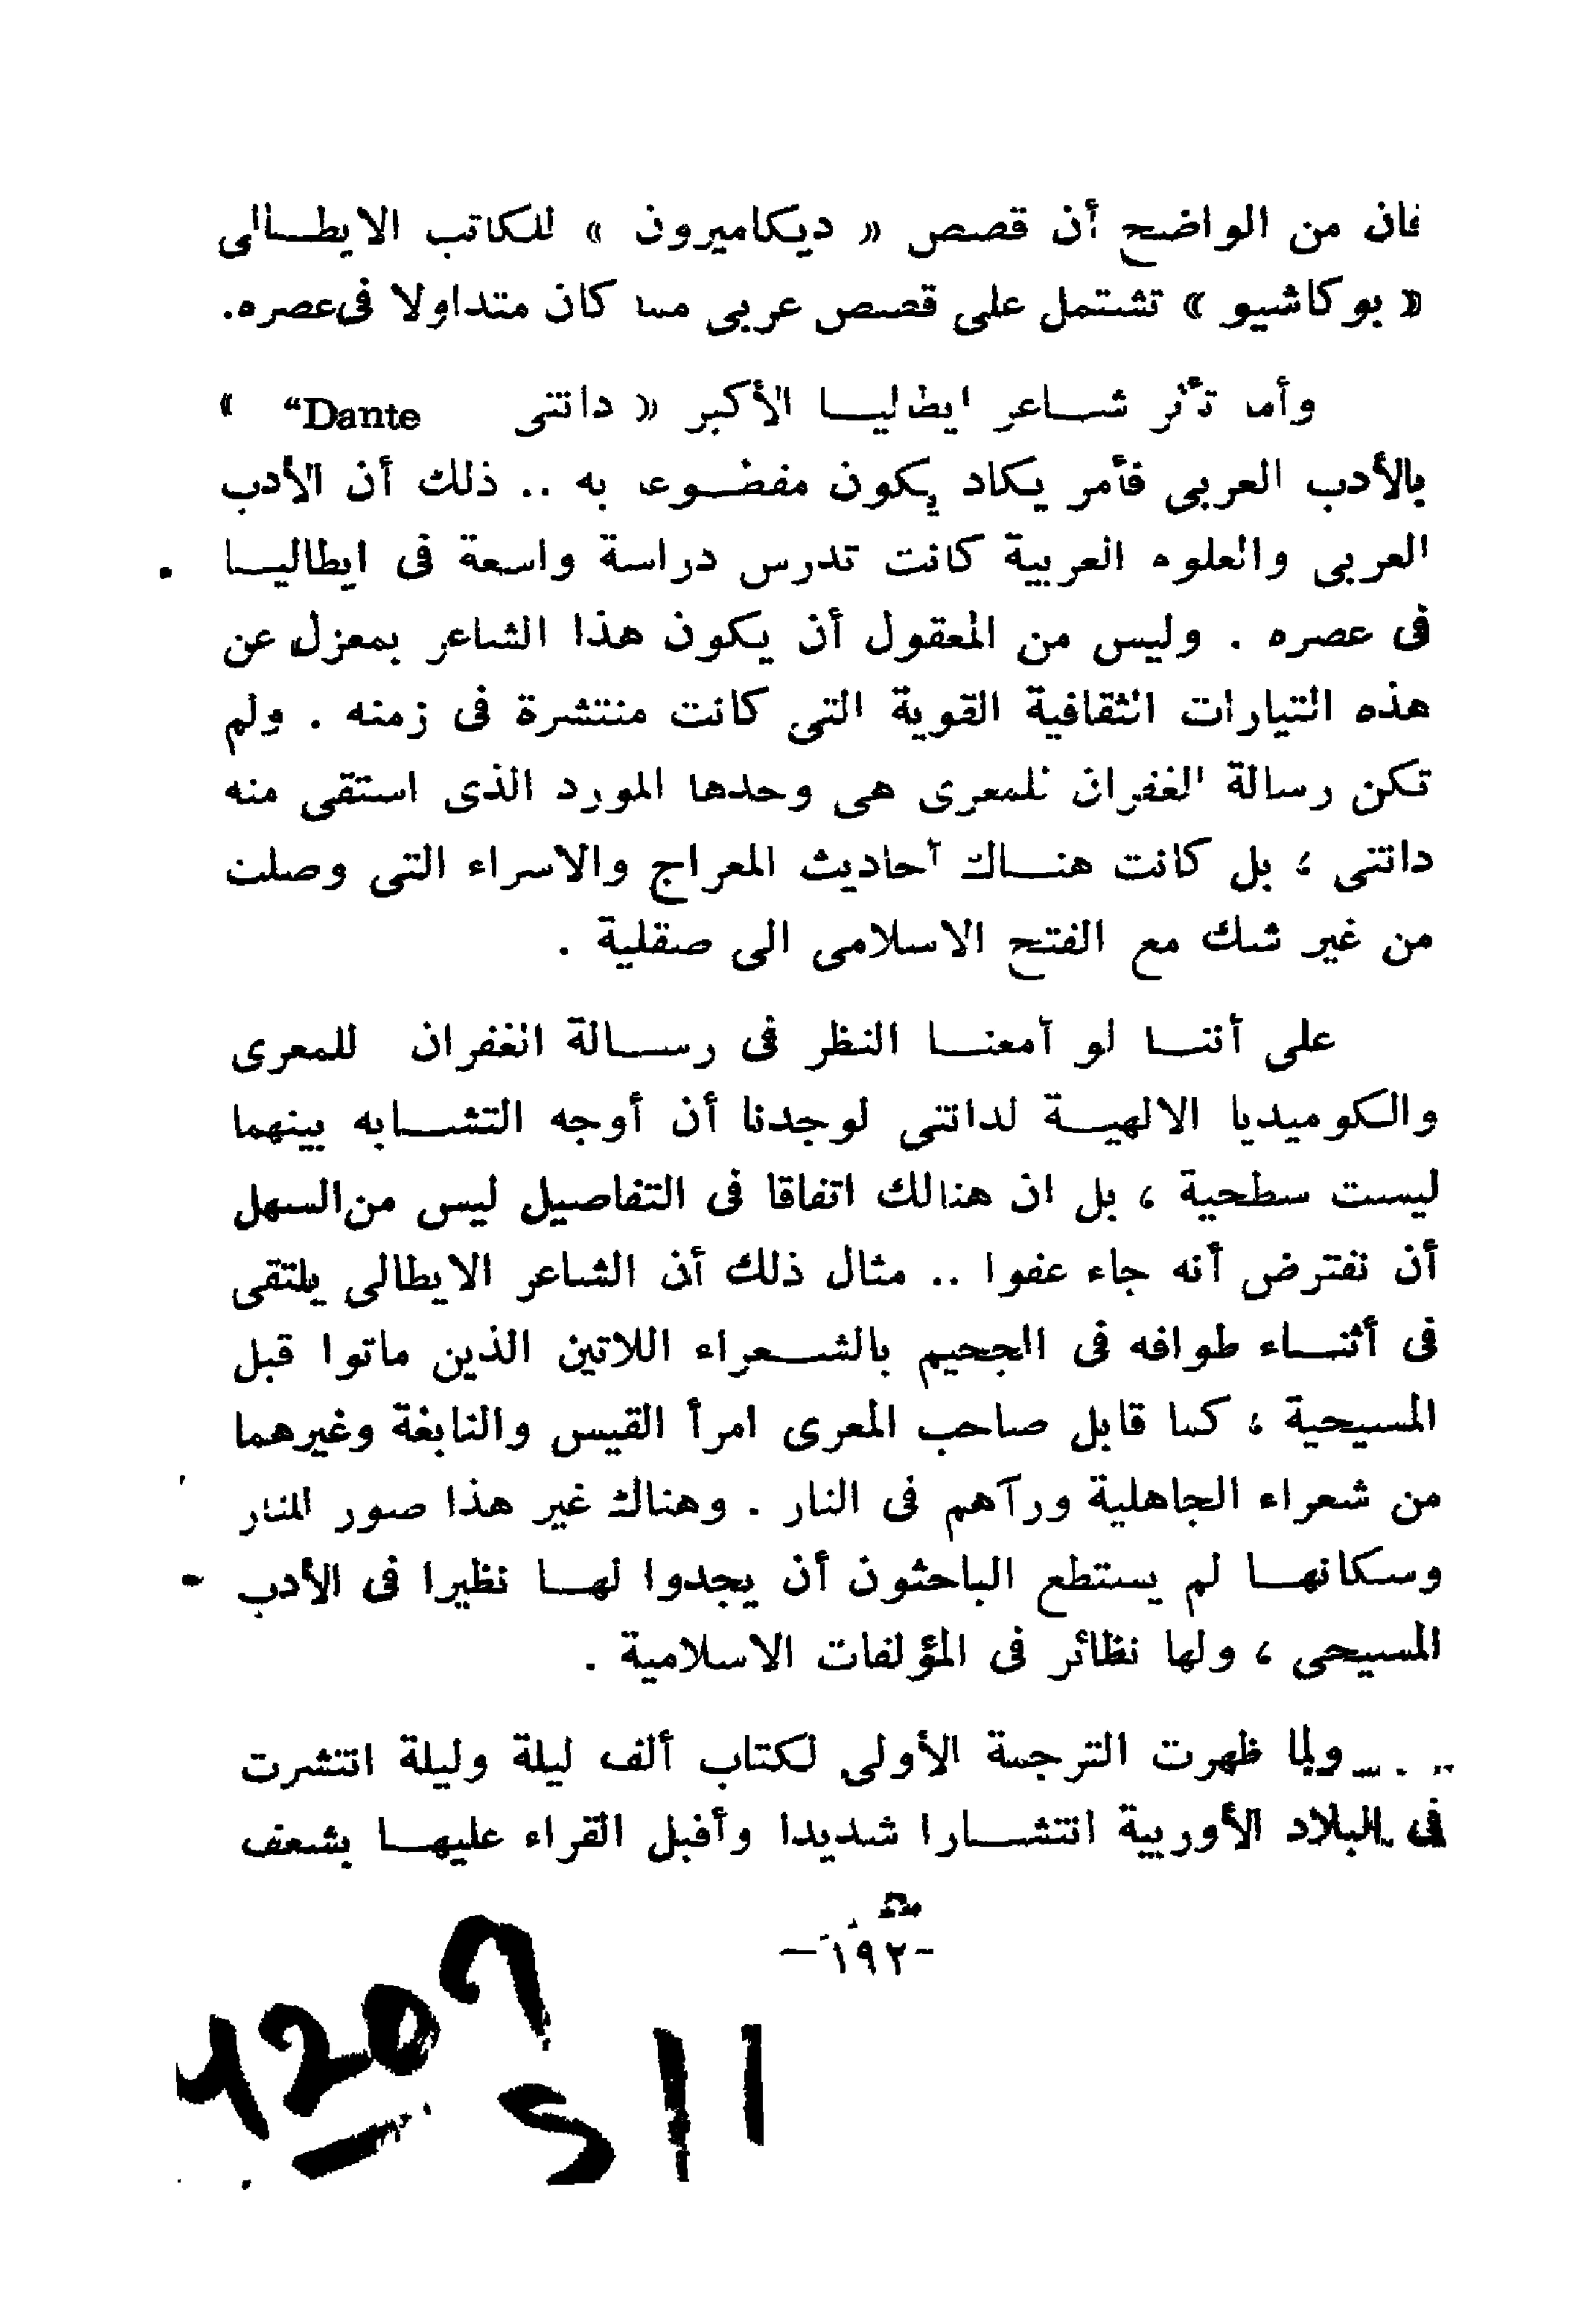 فان من الواضح أن قصص « ديكاميرون » للكاتب الايطالى
« بوكاشيو » تشتمل على قصص عربى مما كان متداولا فى عصره.
وأما تأثر شاعر ايطاليا الأكبر « دانتى Dante“ »
بالأدب العربى فأمر يكاد يكون مفضوعا به .. ذلك أن الأدب
العربى والعلوم العربية كانت تدرس دراسة واسعة فى ايطاليا
فى عصره . وليس من المعقول أن يكون هذا الشاعر بمعزل عن
هذه التيارات الثقافية القوية التى كانت منتشرة فى زمنه . ولم
تكن رسالة الغفران للمعرى هى وحدها المورد الذى استقى منه
دانتى ، بل كانت هناك أحاديث المعراج والاسراء التى وصلت
من غير شك مع الفتح الاسلامى الى صقلية .
على أننا لو أمعنا النظر فى رسالة الغفران للمعرى
والكوميديا الالهية لدانتى لوجدنا أن أوجه التشابه بينهما
ليست سطحية ، بل ان هنالك اتفاقا فى التفاصيل ليس من السهل
أن نفترض أنه جاء عفوا .. مثال ذلك أن الشاعر الايطالى يلتقى
فى أثناء طوافه فى الجحيم بالشعراء اللاتين الذين ماتوا قبل
المسيحية ، كما قابل صاحب المعرى امرأ القيس والنابغة وغيرهما
من شعراء الجاهلية ورآهم فى النار . وهناك غير هذا صور للنار
وسكانها لم يستطع الباحثون أن يجدوا لها نظيرا فى الأدب
المسيحى ، ولها نظائر فى المؤلفات الاسلامية .
ولما ظهرت الترجمة الأولى لكتاب ألف ليلة وليلة انتشرت
فى البلاد الأوربية انتشارا شديدا وأقبل القراء عليها بشعف
-١٩٢-